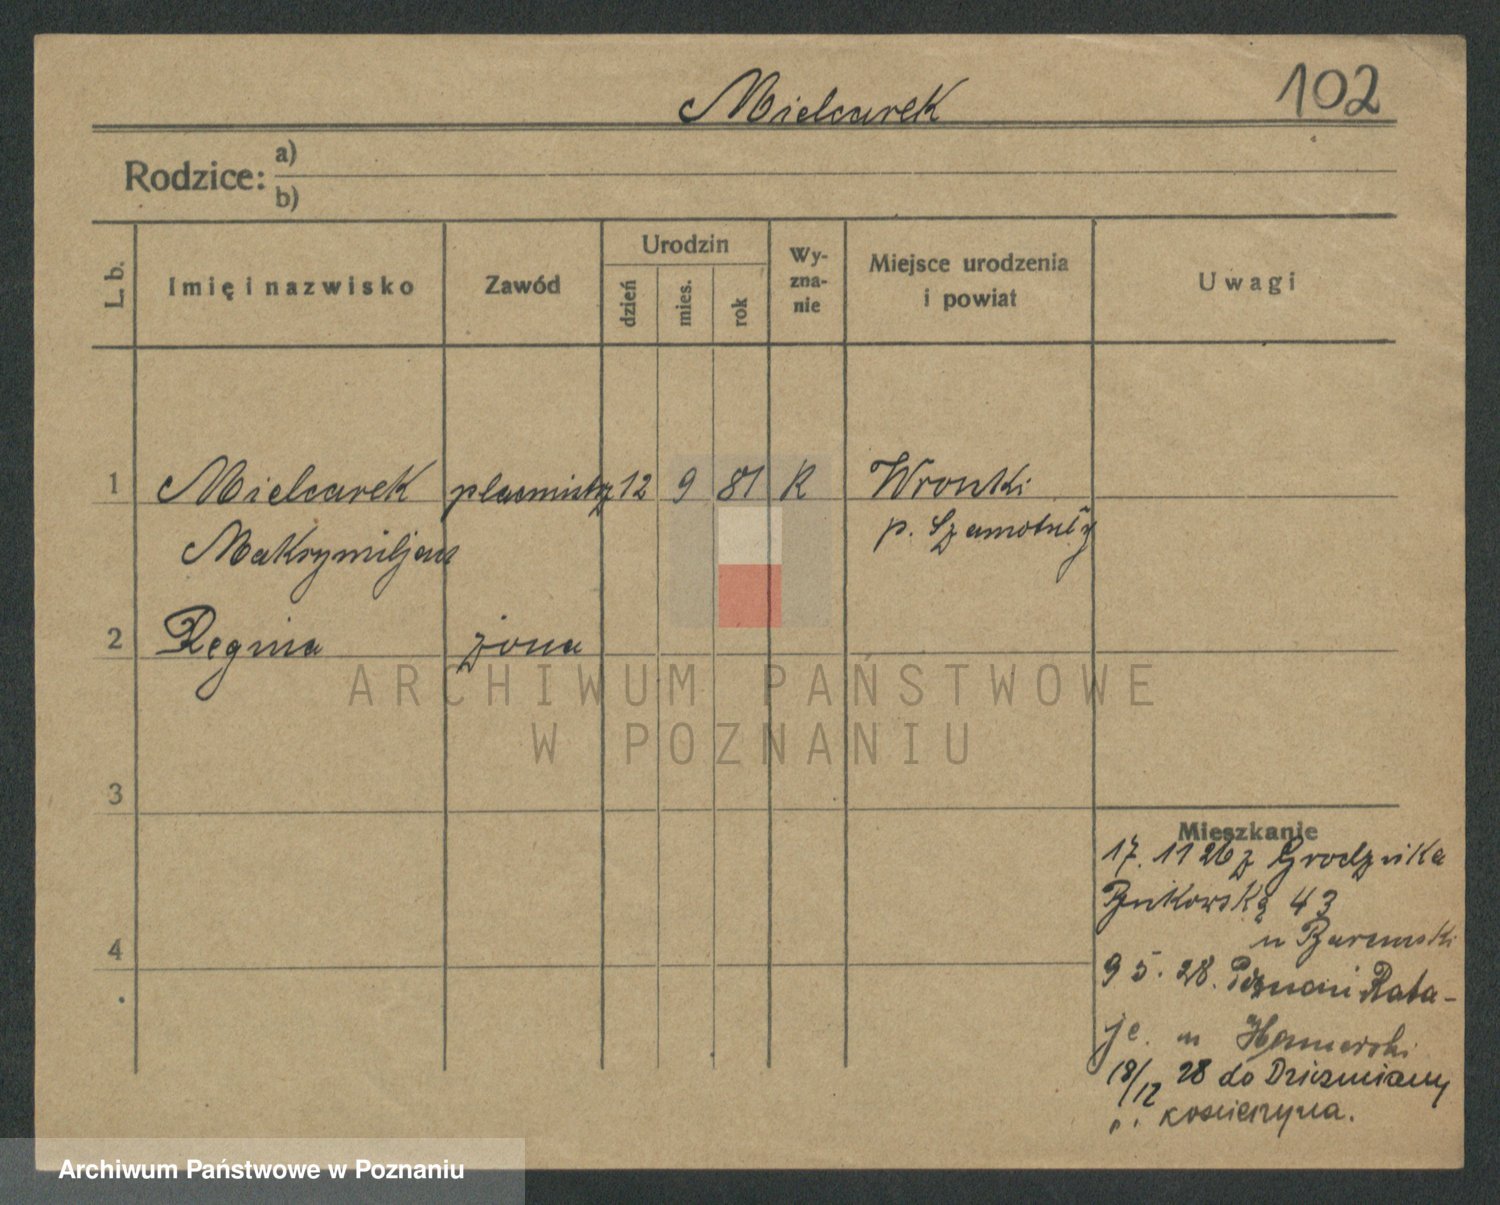 Mielcarek
102
Rodzice:
a)
b)
L. b.
Imię i nazwisko
Zawód
Urodzin
dzień
mies.
rok
Wy-
zna-
nie
Miejsce urodzenia
i powiat
Uwagi
1 Mielcarek 12 9 81 R Wronki
Maksymiljan p. Szamotuły
2 Regina żona
3
4
ARCHIWUM PAŃSTWOWE
W POZNANIU
Mieszkanie
17. 11 26 z Grodziska
Bukowska 43
u
9 5. 28. Poznań Rata-
je. u
18/12 28 do Dziemiany
p. Kościerzyna.
Archiwum Państwowe w Poznaniu